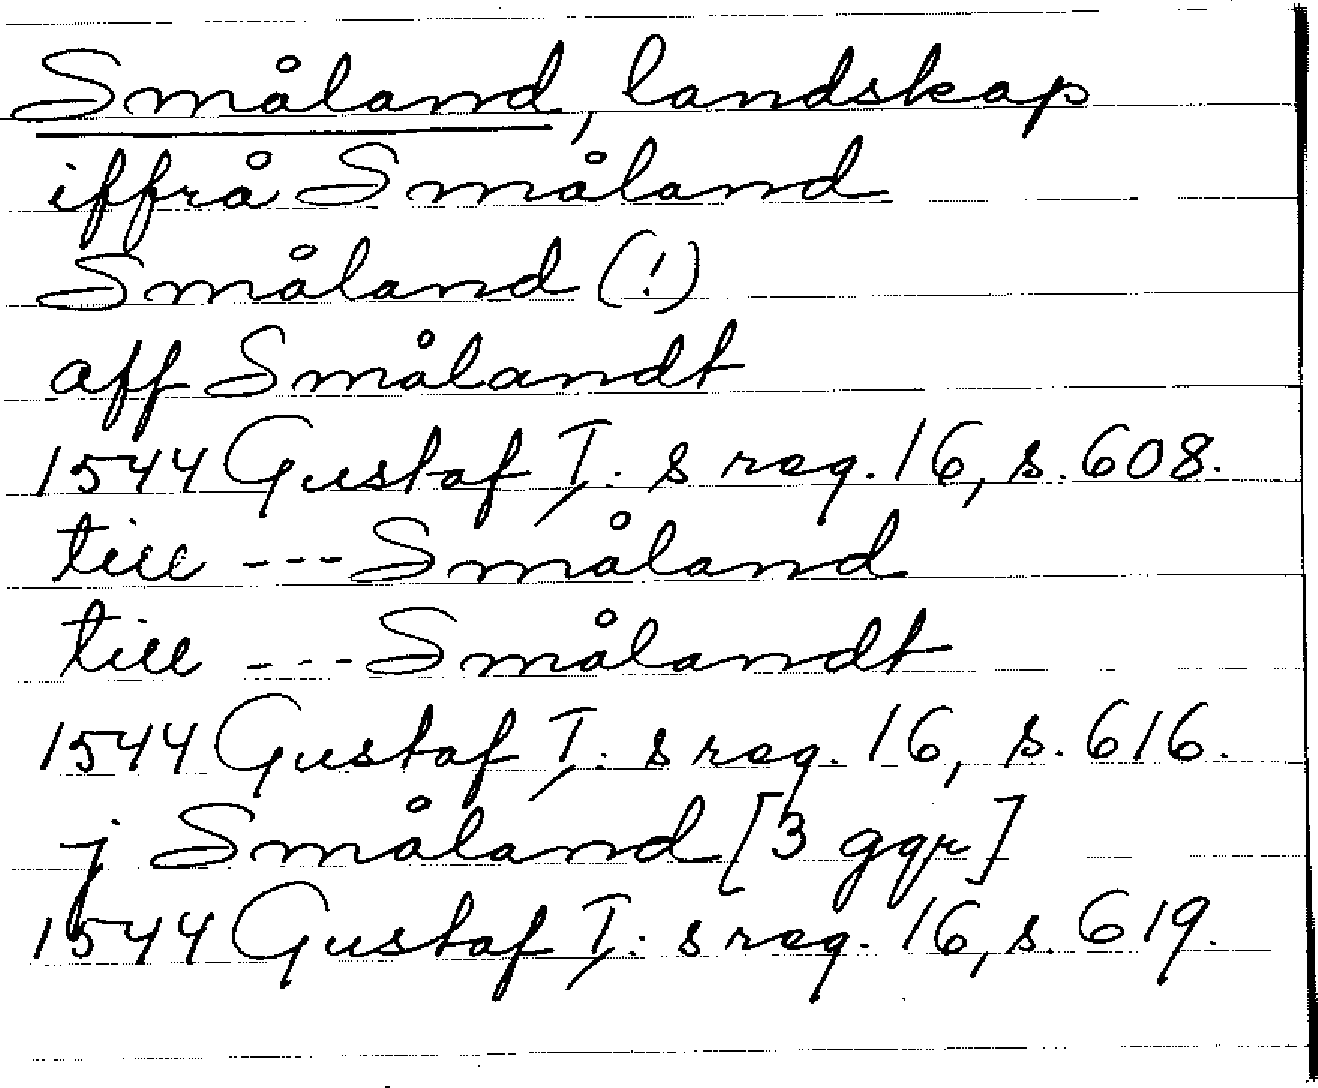 Småland, landskap
iffrå Småland
Småland (!)
aff Smålandt
1544 Gustaf I: s reg. 16, s. 608.
till --- Småland
till --- Smålandt
1544 Gustaf I: s reg. 16, s. 616.
j Småland [3 ggr]
1544 Gustaf I: s reg. 16, s. 619.